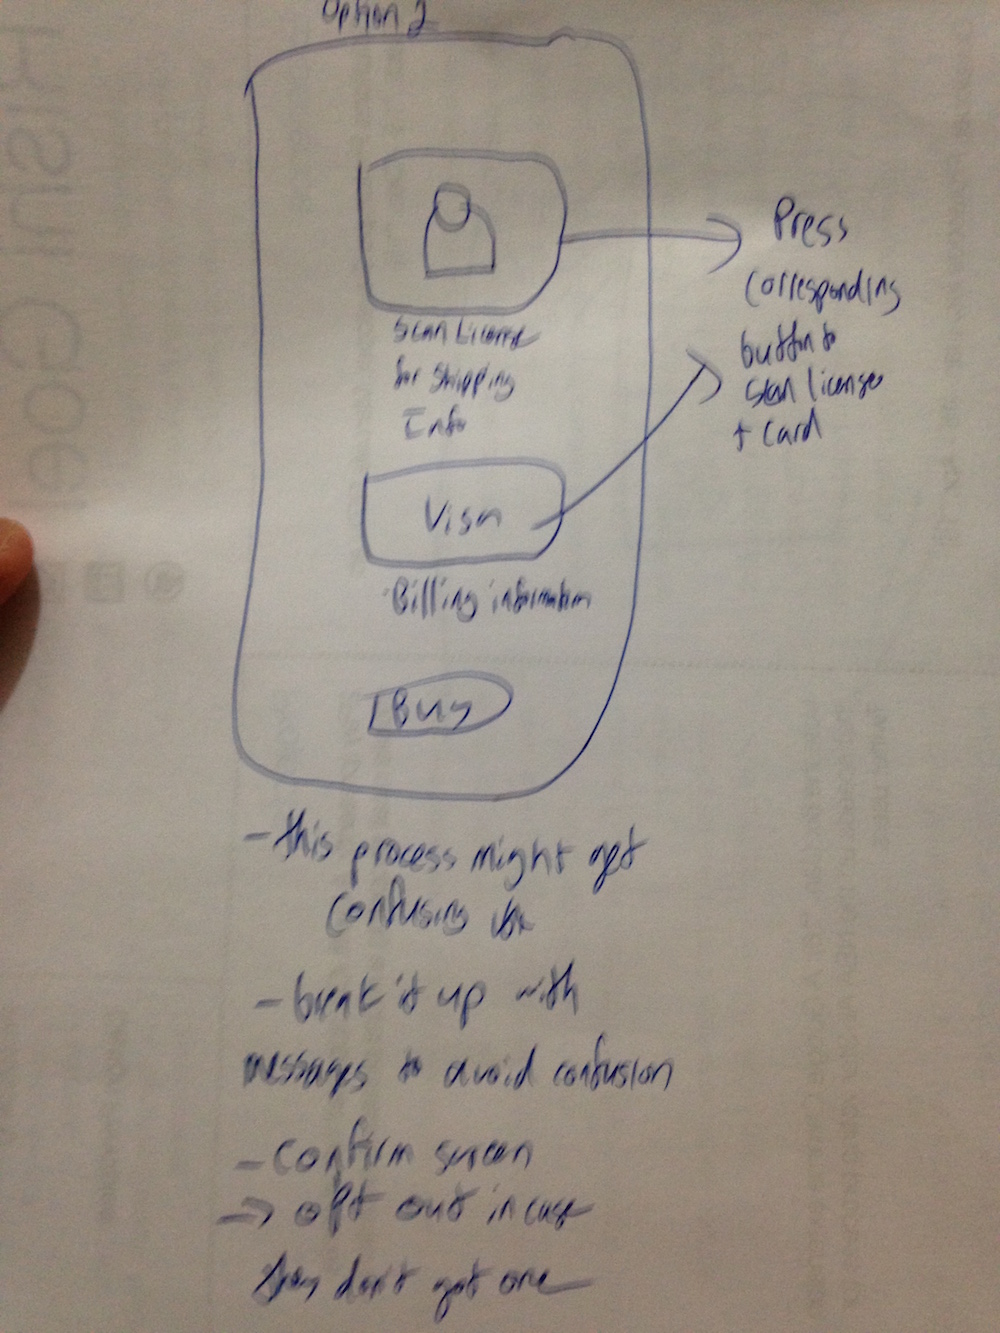 Option 2
Scan License
for Shipping
Info
Visa
Billing information
Buy
Press
Corresponding
button to
Scan license
+ Card
- this process might get
confusing
- break it up with
messages to avoid confusion
- Confirm screen
→ opt out in case
they don't got one